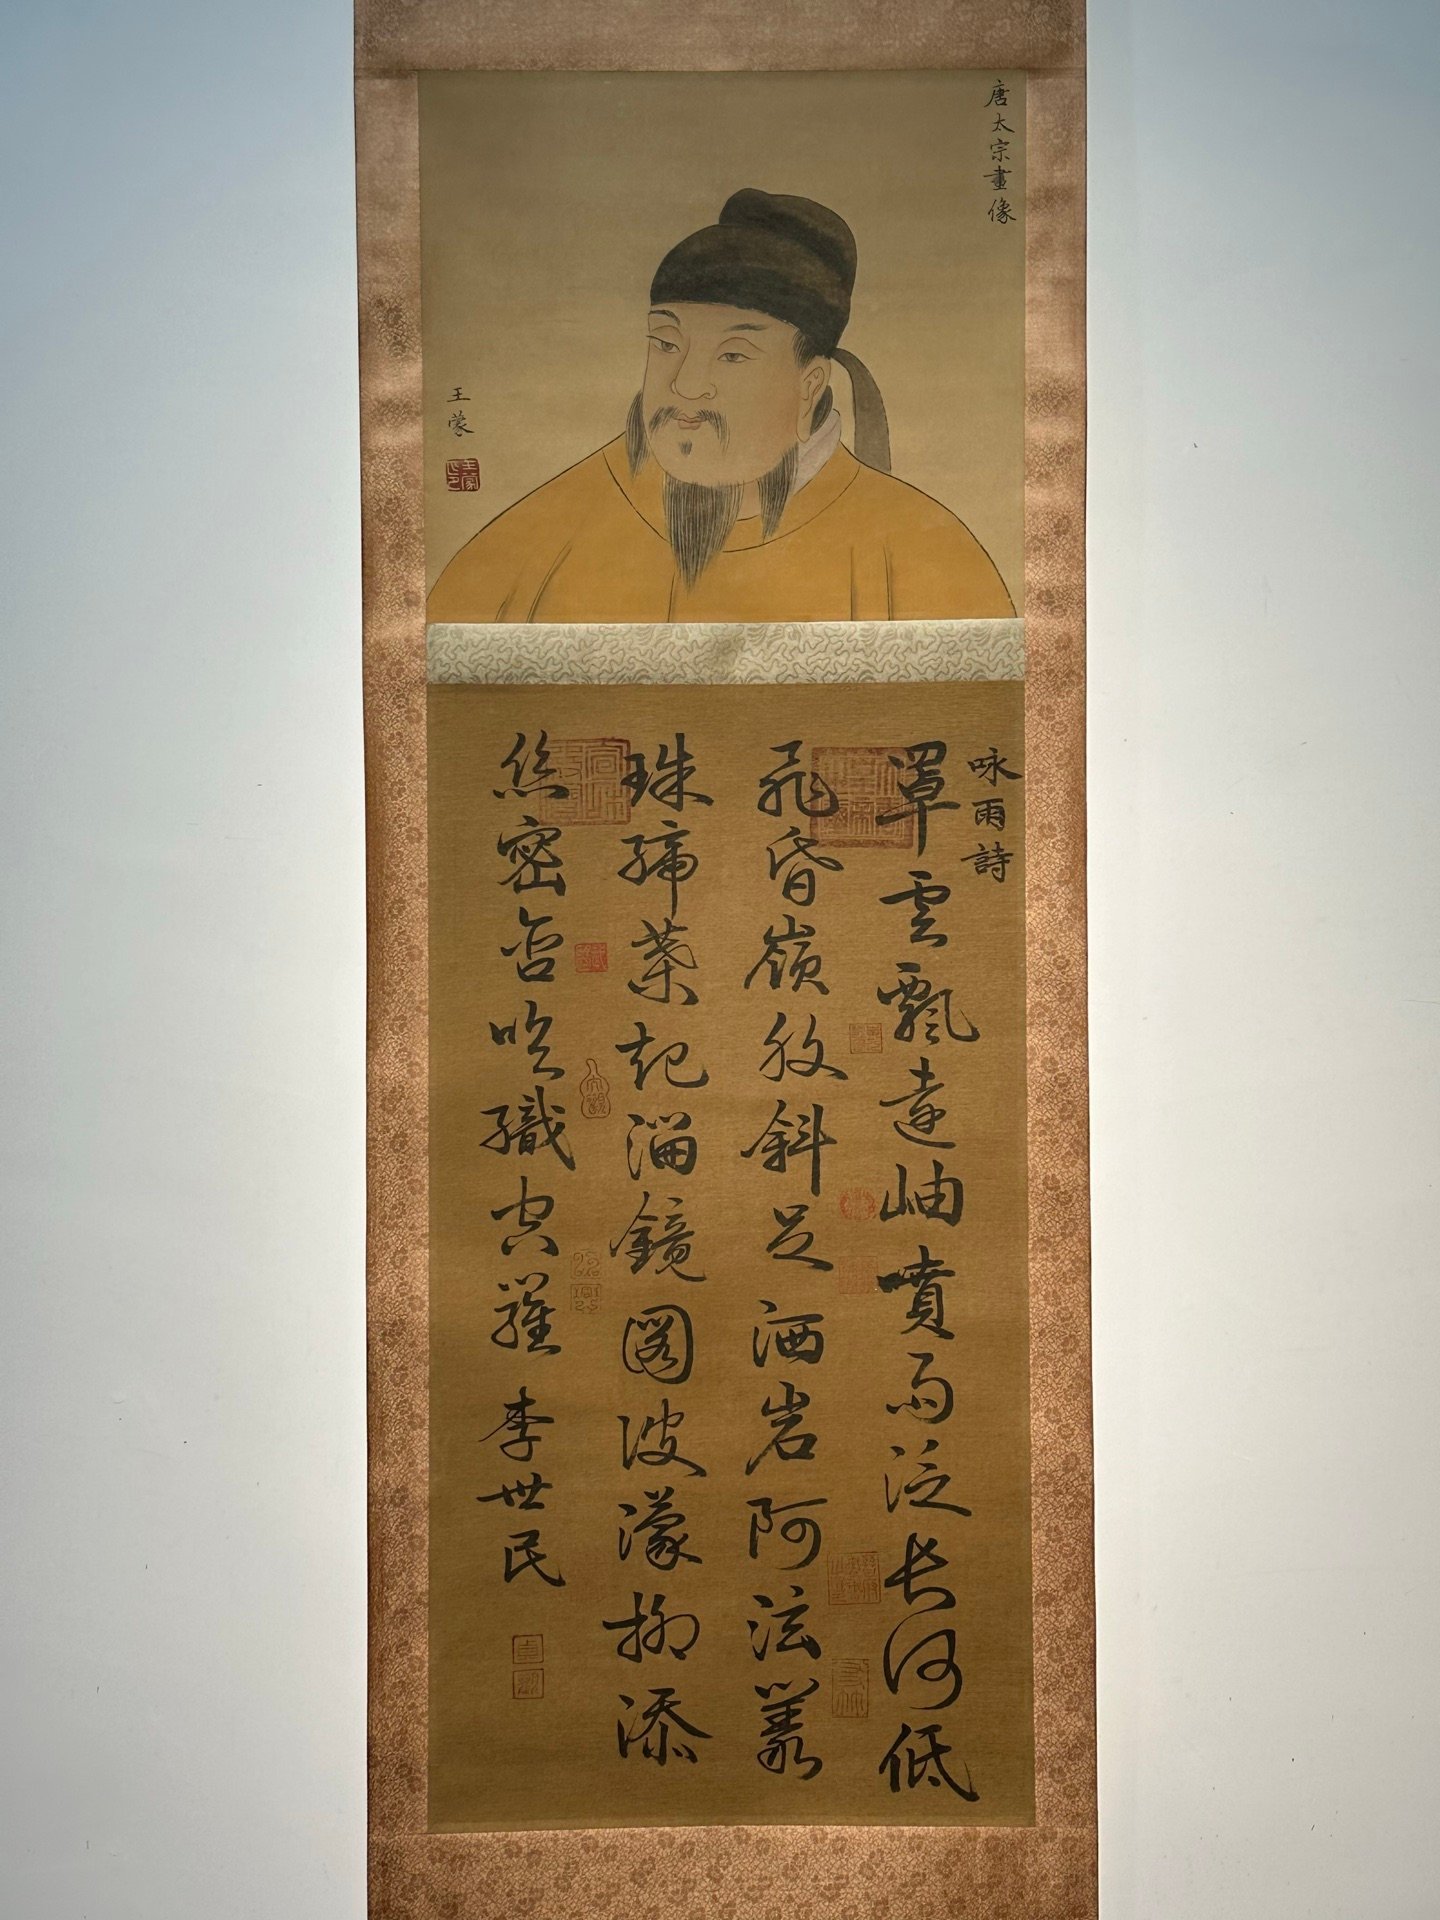 唐太宗畫像
王蒙
王蒙之印
咏雨詩
罩雲飄遠岫噴雨泛長河低
飛昏嶺腹斜足洒岩阿泫叢
珠締葉起溜鏡圖波濛柳添
絲密含吹織空羅 李世民
貞觀